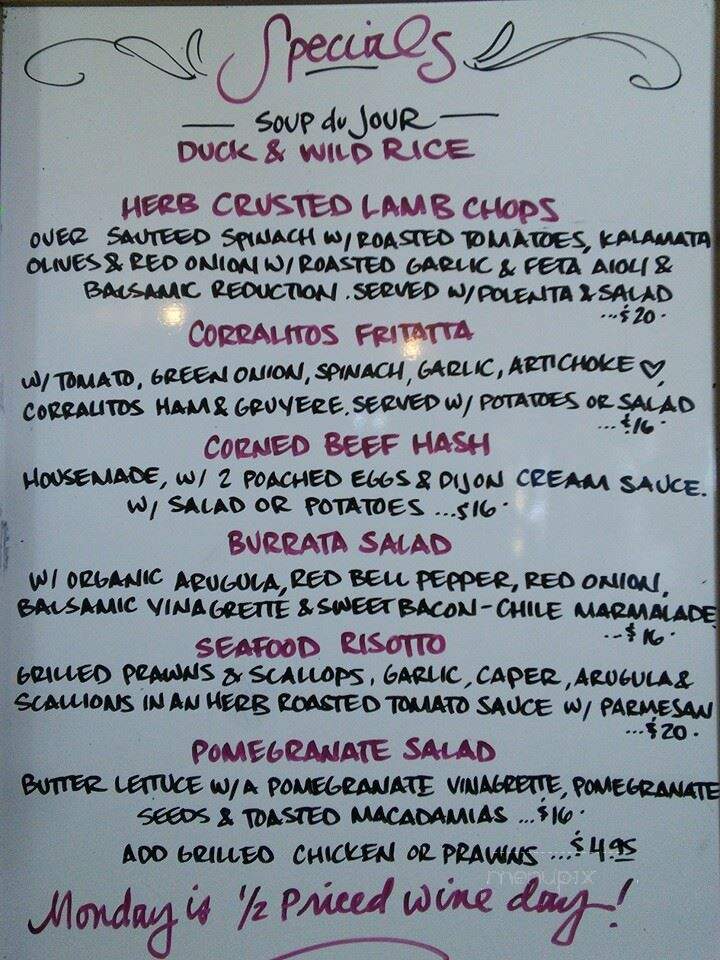 Specials
SOUP du JOUR
DUCK & WILD RICE
HERB CRUSTED LAMB CHOPS
OVER SAUTEED SPINACH W/ ROASTED TOMATOES, KALAMATA
OLIVES & RED ONION W/ ROASTED GARLIC & FETA AIOLI &
BALSAMIC REDUCTION. SERVED W/ POLENTA & SALAD
...$20.
CORRALITOS FRITATTA
W/ TOMATO, GREEN ONION, SPINACH, GARLIC, ARTICHOKE ♡,
CORRALITOS HAM & GRUYERE. SERVED W/ POTATOES OR SALAD
...$16.
CORNED BEEF HASH
HOUSEMADE, W/ 2 POACHED EGGS & DIJON CREAM SAUCE.
W/ SALAD OR POTATOES ...$16.
BURRATA SALAD
W/ ORGANIC ARUGULA, RED BELL PEPPER, RED ONION,
BALSAMIC VINAGRETTE & SWEET BACON-CHILE MARMALADE
...$16.
SEAFOOD RISOTTO
GRILLED PRAWNS & SCALLOPS, GARLIC, CAPER, ARUGULA &
SCALLIONS IN AN HERB ROASTED TOMATO SAUCE W/ PARMESAN
...$20.
POMEGRANATE SALAD
BUTTER LETTUCE W/ A POMEGRANATE VINAGRETTE, POMEGRANATE
SEEDS & TOASTED MACADAMIAS ...$16.
ADD GRILLED CHICKEN OR PRAWNS ...$4.95
menupix
Monday is 1/2 Priced wine day!